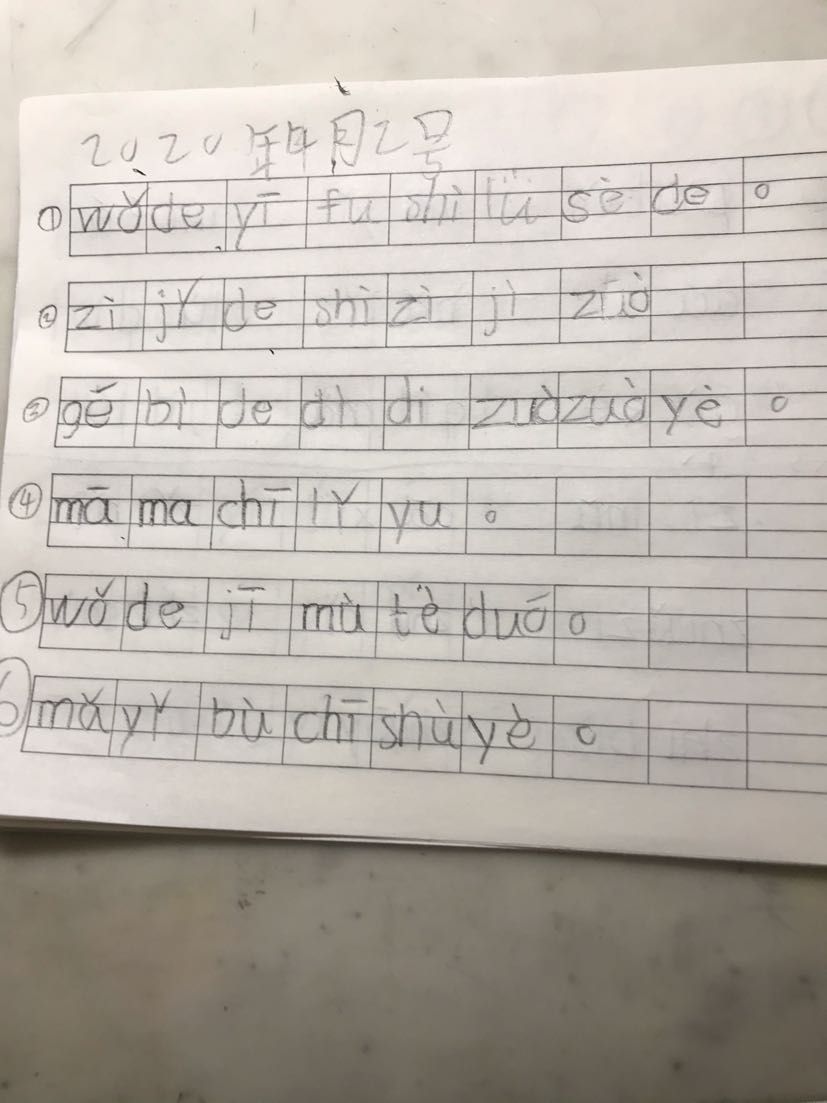 2020年4月2号
① wǒ de yī fu shì lǜ sè de 。
② zì jǐ de shì zì jì zuò
③ gé bì de dì di zuò zuò yè 。
④ mā ma chī lǐ yu 。
⑤ wǒ de jī mù tè duō 。
⑥ mǎ yǐ bù chī shù yè 。